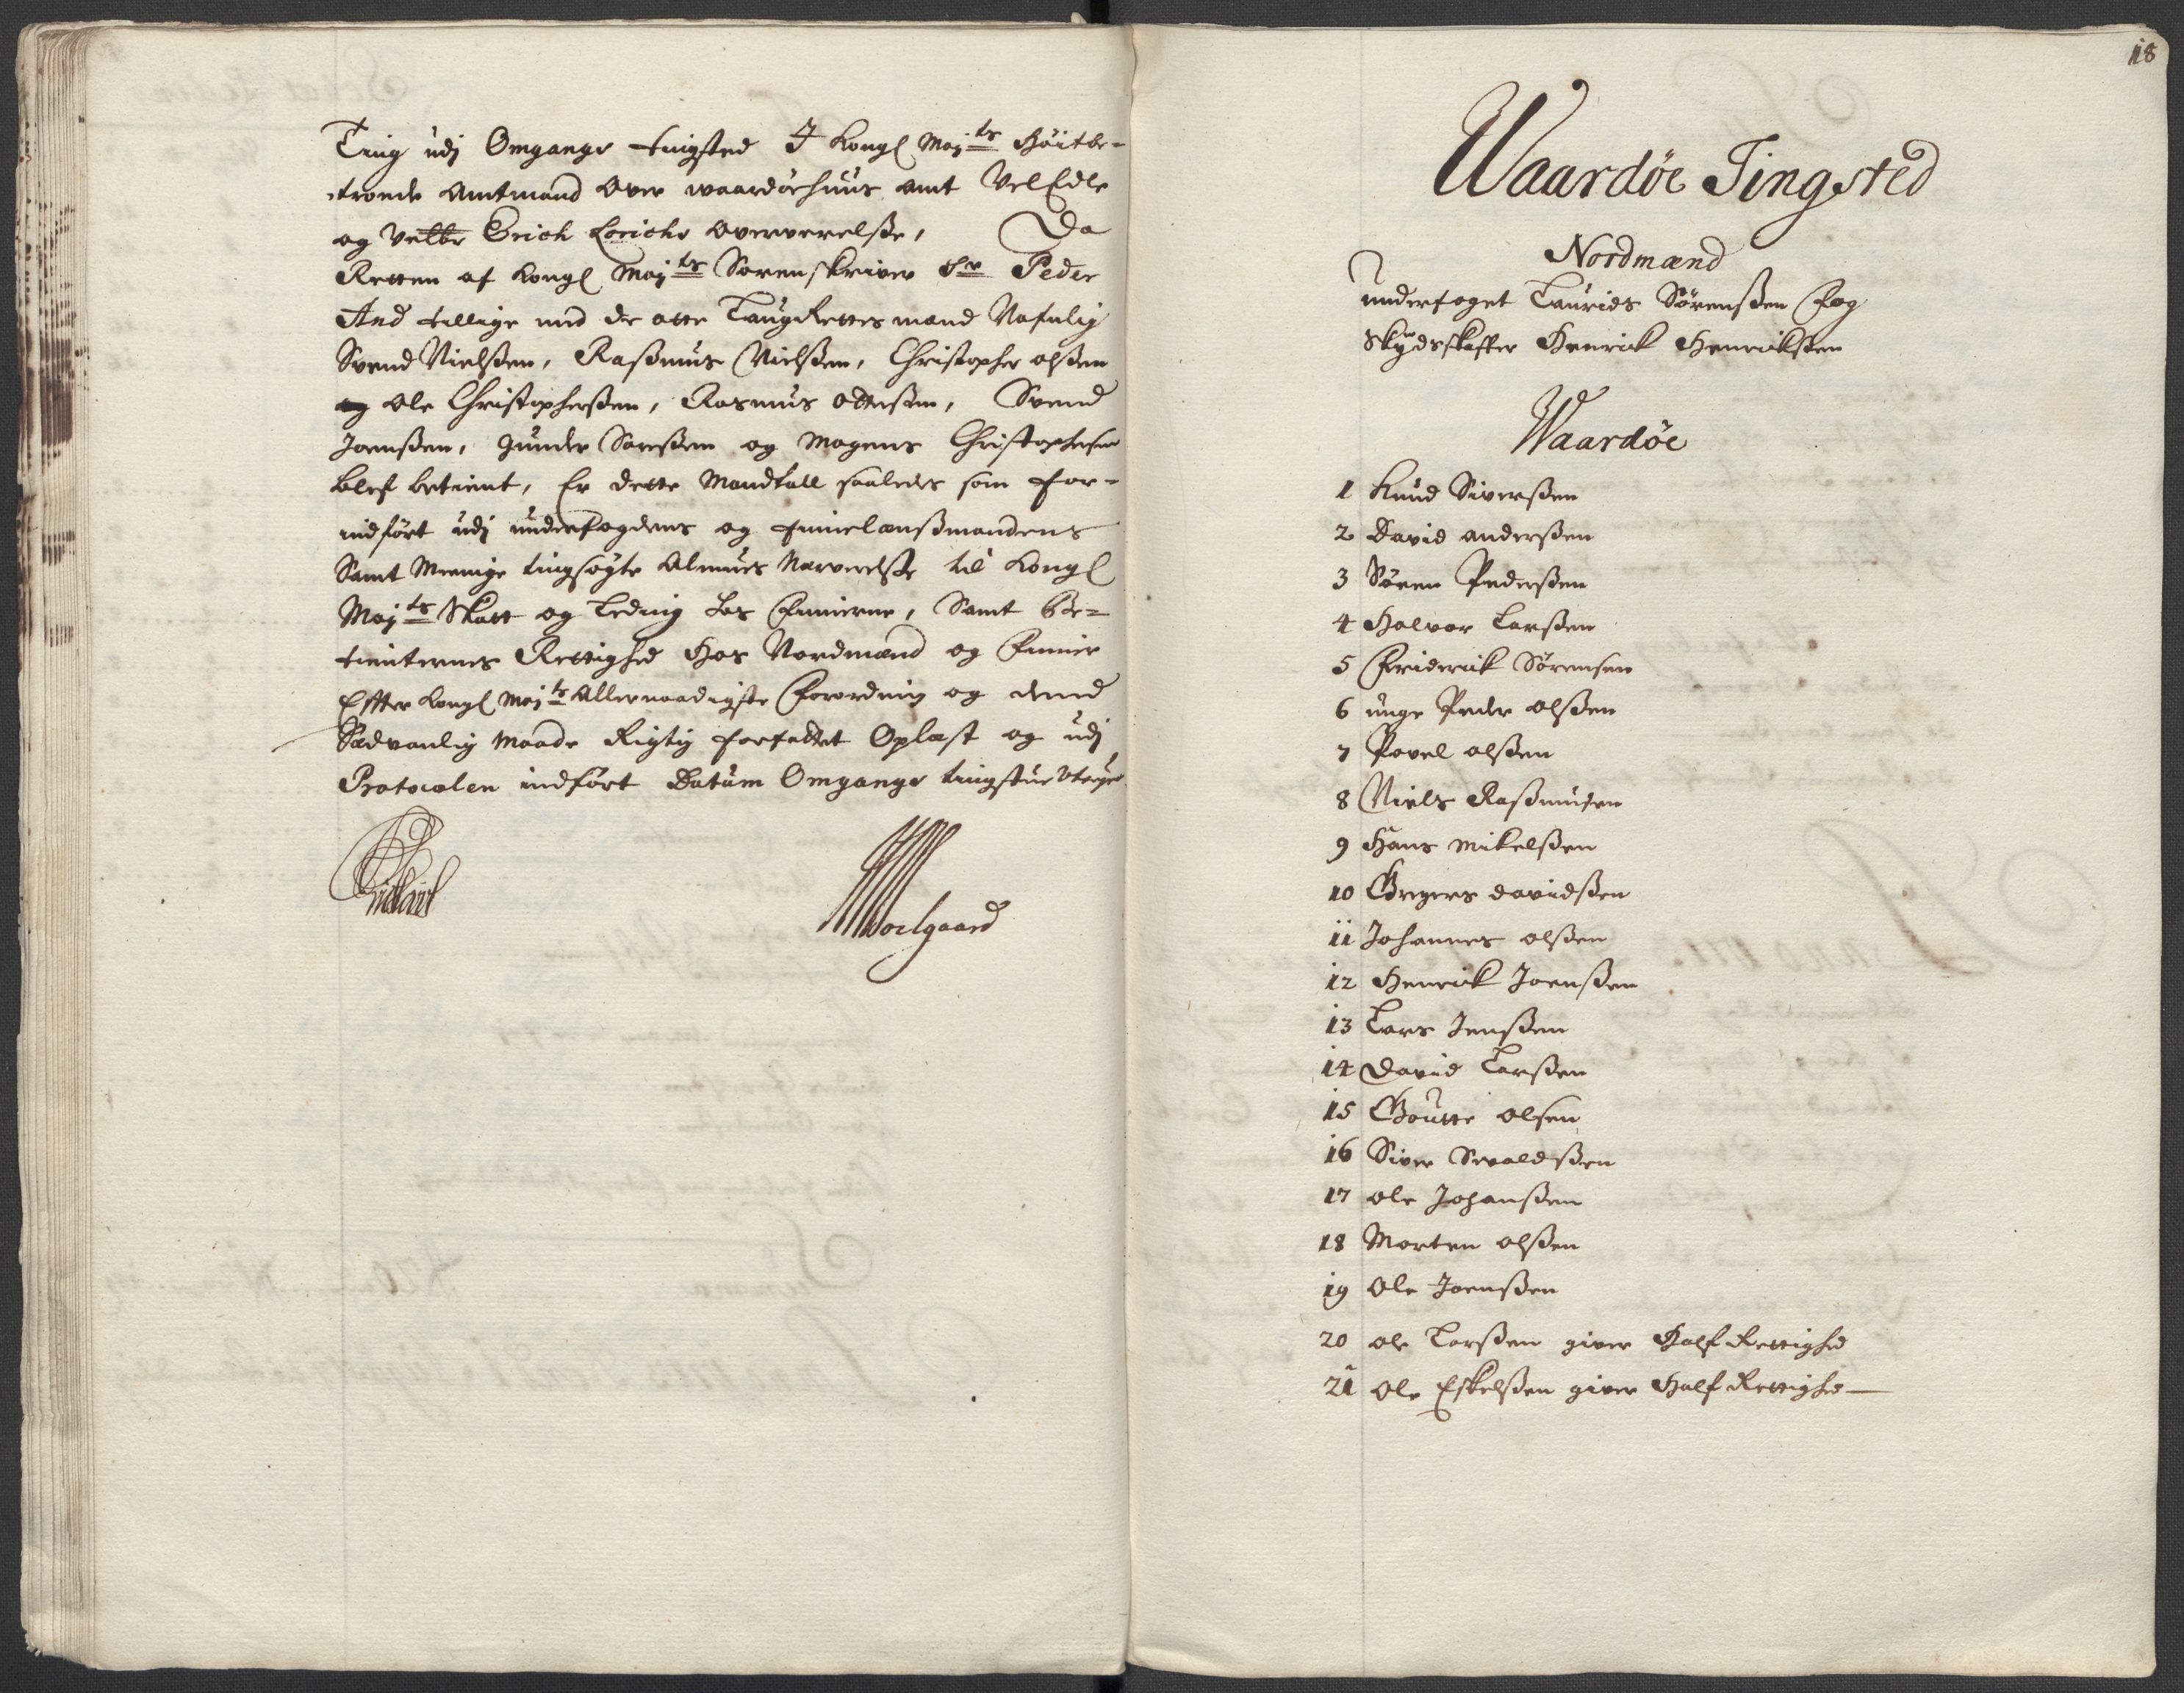 Ting udj Omgangs tingsted J Kongl Maj:ts Høitbe-
troede Amtmand Over waardøehuus amt VelEdle
og Velbr Erich Lorichs Oververelße, Da
Retten af Kongl Maj:ts Sorenskriver Sr Peder
And tillige med de otte LaugRettes mænd Nafnlig
Svend Nielßen, Raßmus Nielßen, Christopher olßen
og Ole Christopherßen, Rasmus Ottersen, Svend
Joenßen, Gunder Sarßen og Mogens Christophersen
blef betient, Er dette Mandtall saaledes som for-
indført udj underfogdens og finnelensmandens
Samt Meenige tingsøgte Almues Nærverelße til Kongl
Maj:ts Skatt og Leding hos Finnerne, Samt Be-
tienternes Rettighed Hos Nordmænd og Finner
Effter Kongl Maj:ts Allernaadigste Forordning og dend
Sædvanlig Maade Rigtig forfattet Oplæst og udj
Protocolen indført Datum Omgangs tingstue
18
Waardøe Tingsted
Nordmænd
underfoget Laurids Sørenßen Fog
Skydsskaffer Henrick Henrickßen
Waardøe
1 Knud Siverßen
2 David anderßen
3 Søren Pederßen
4 Halvor Larßen
5 Friderick Sørensen
6 unge Peder olßen
7 Povel olßen
8 Niels Raßmusen
9 Hans Mikelßen
10 Gregers davidßen
11 Johannes olßen
12 Henrick Joenßen
13 Lars Jenßen
14 David Larßen
15 Goutte olsen
16 Siver Sevaldßen
17 ole Johanßen
18 Morten olßen
19 Ole Joenßen
20 ole Larßen giver Half Rettighed
21 Ole Eskelßen giver Half Rettighed